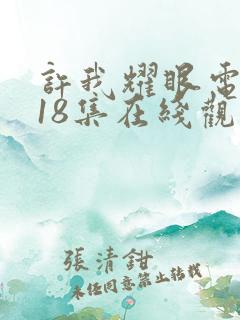 許我耀眼電
18集在綫觀
張清鉗
未经同意禁止转载